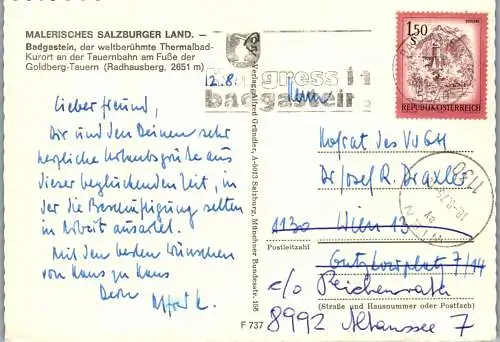 MALERISCHES SALZBURGER LAND. —
Badgastein, der weltberühmte Thermalbad-
Kurort an der Tauernbahn am Fuße der
Goldberg-Tauern (Radhausberg, 2651 m)
12.8.
Kongress in
badgastein
1.50
REPUBLIK ÖSTERREICH
Lieber Freund,
Dir und den Deinen sehr
herzliche Urlaubsgrüße aus
dieser beglückenden Zeit, in
der die Beschäftigung selten
in Arbeit ausartet.
Mit den besten Wünschen
von Haus zu Haus
Dein
Verlag Alfred Gründler, A-5013 Salzburg, Münchner Bundesstr. 156
F 737
Hofrat des VwGH
Dr Josef R. Draxler
1130 Wien 13
Postleitzahl
Gutzkowplatz 7/14
c/o Reichenrath
(Straße und Hausnummer oder Postfach)
8992 Altaussee 7
113
WIEN